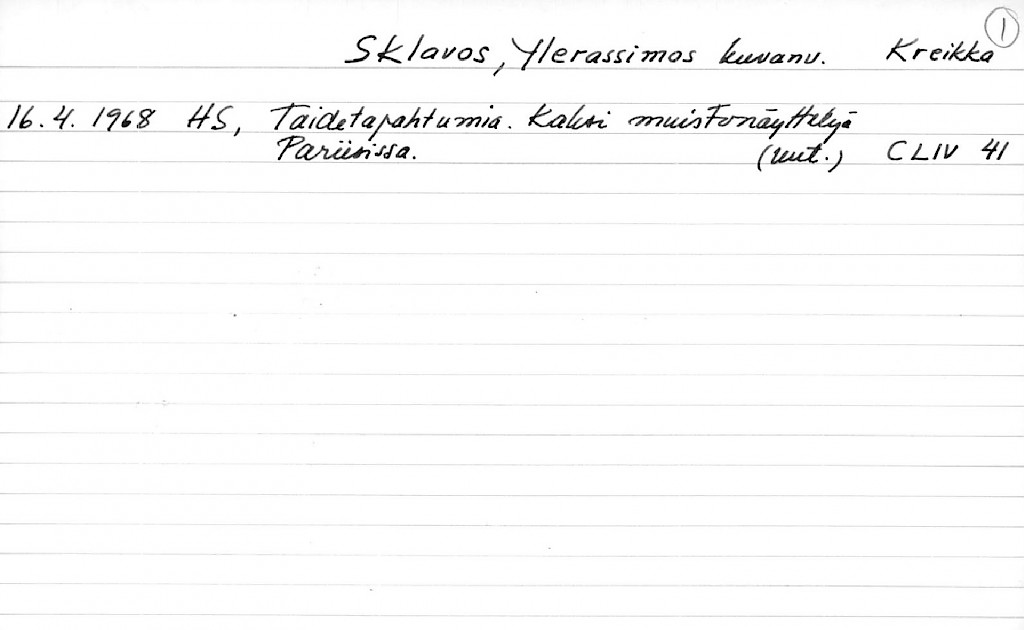 1
Sklavos, Ylerassimos kuvanv. Kreikka
16.4. 1968 HS, Taidetapahtumia. Kaksi muistonäyttelyä
Pariisissa. (uut.) CLIV 41